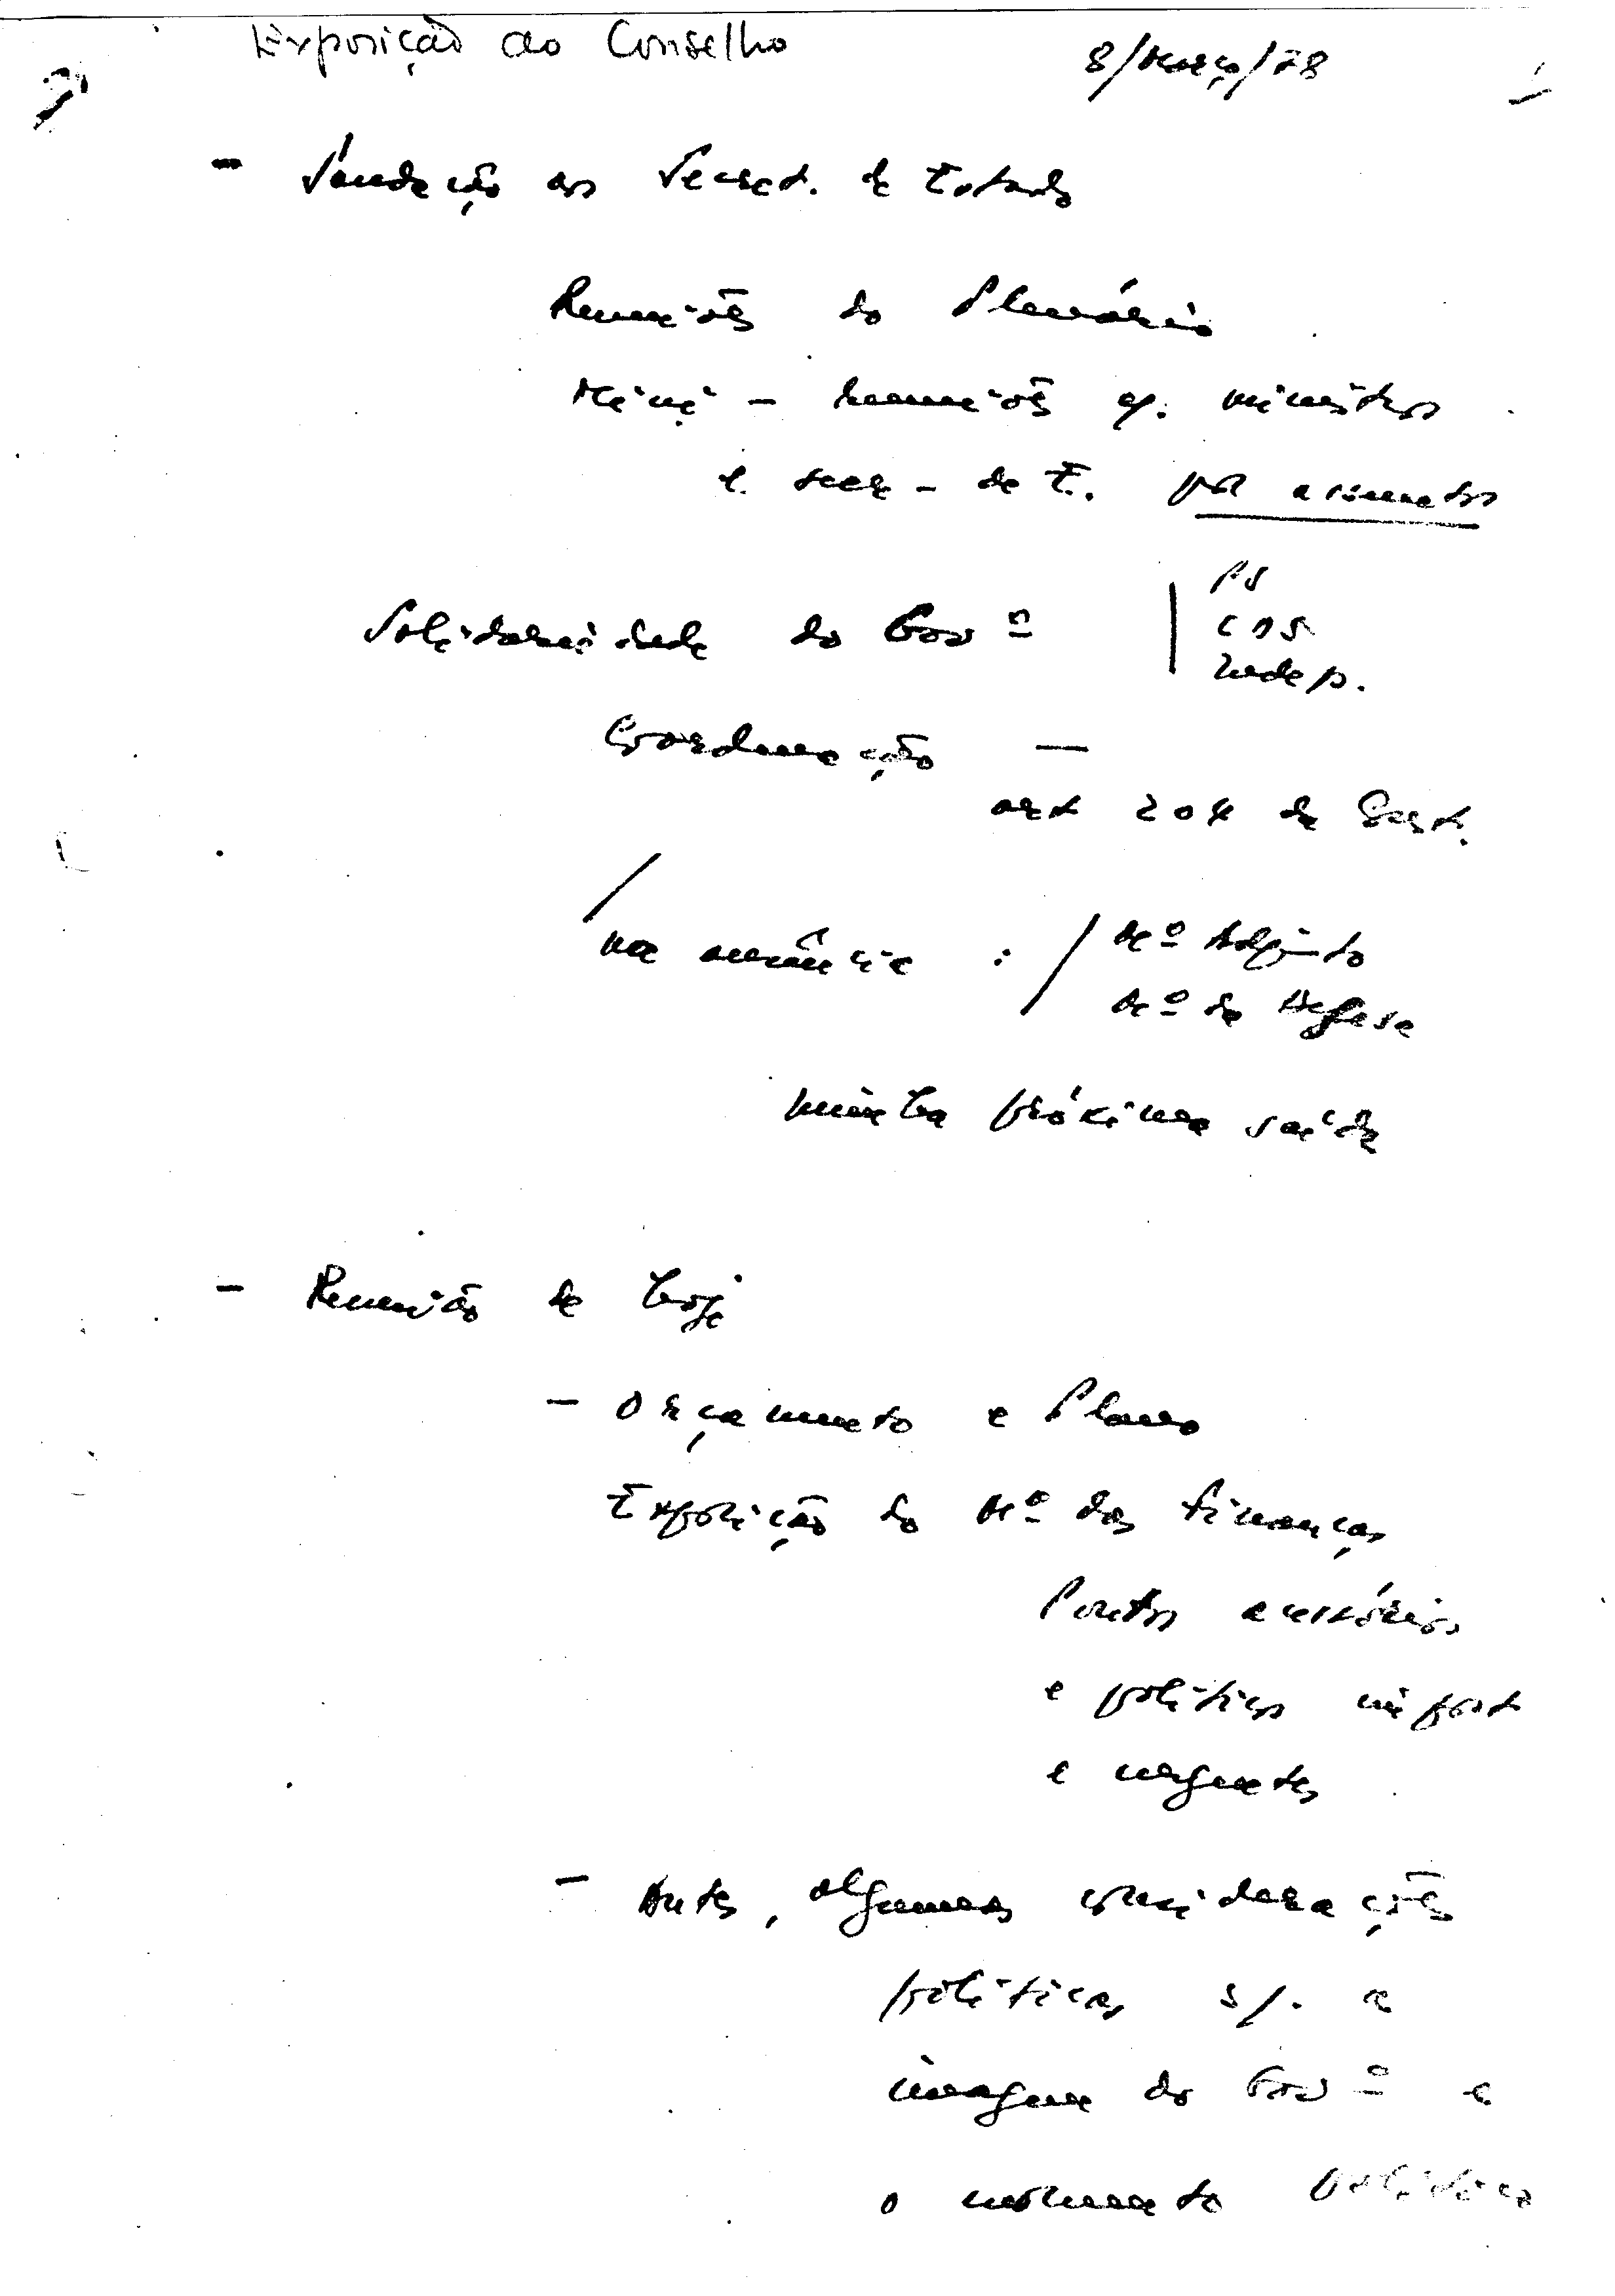 Exposição ao Conselho 8/Março/78
- Saudação aos Secret. de Estado
Reuniões do Plenário
Mini - reuniões c/. ministros
e secr - de E. por assuntos
PS
Solidariedade do Govº CDS
Indep.
Coordenação —
art 204 da Const.
na ausência : / Mº Adjunto
Mº da Defesa
minha próxima saída
- Reunião de hoje
- Orçamento e Plano
Exposição do Mº das Finanças
Pontos acessórios
e políticos import
e urgentes
- Antes, algumas considerações
políticas s/. a
imagem do Govº e
o momento político